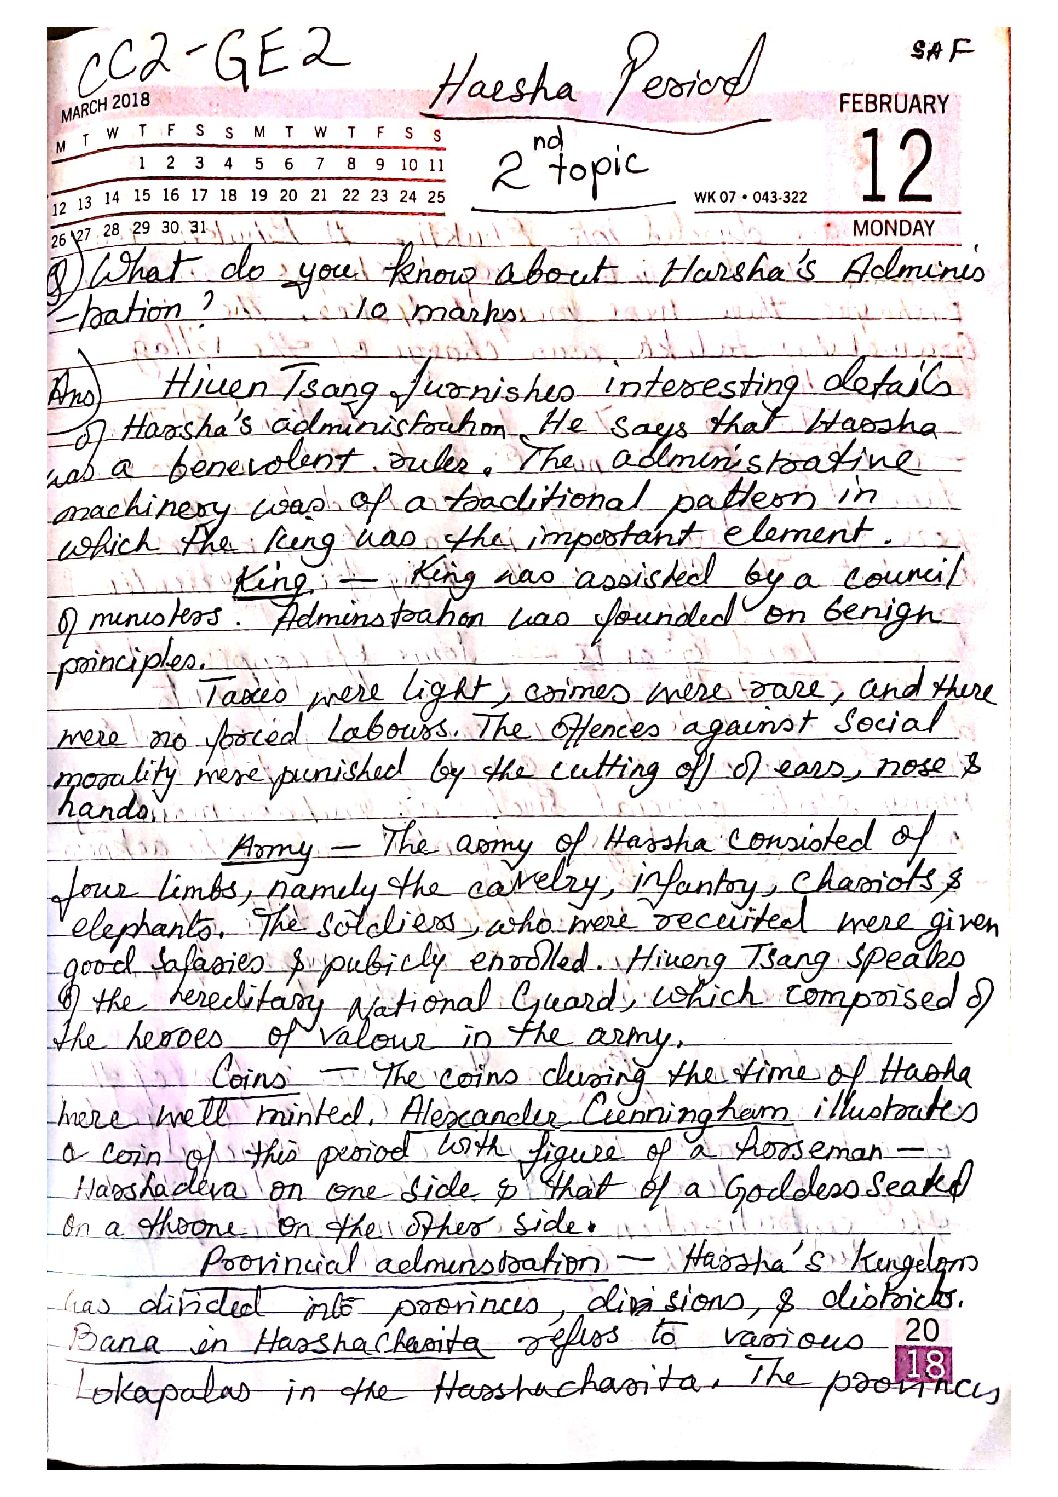 CC2-GE2
SAF
Harsha Period
MARCH 2018
FEBRUARY
M T W T F S S M T W T F S S
1 2 3 4 5 6 7 8 9 10 11
12 13 14 15 16 17 18 19 20 21 22 23 24 25
26 27 28 29 30 31
2nd topic
12
WK 07 • 043-322
MONDAY
Q) What do you know about Harsha's Adminis
-tration? 10 marks.
Ans) Hiuen Tsang furnishes interesting details
of Harsha's administration. He says that Harsha
was a benevolent ruler. The administrative
machinery was of a traditional pattern in
which the king was the important element.
King — King was assisted by a council
of ministers. Adminstration was founded on benign
principles.
Taxes were light, crimes were rare, and there
were no forced Labours. The offences against Social
morality were punished by the cutting off of ears, nose &
hands.
Army — The army of Harsha consisted of
four limbs, namely the cavelry, infantry, chariots &
elephants. The soldiers, who were recuited were given
good salaries & pubicly enrolled. Hiueng Tsang speaks
of the hereditary National Guard, which comprised of
the heroes of valour in the army.
Coins — The coins during the time of Hasha
were well minted. Alexander Cunningham illustrates
a coin of this period with figure of a horseman —
Harshadeva on one side & that of a Goddess seated
on a throne on the other side.
Provincial adminstration — Harsha's Kingdom
was divided into provinces, divisions, & districts.
Bana in Harshacharita refers to various
Lokapalas in the Harshacharita. The provinces
20
18